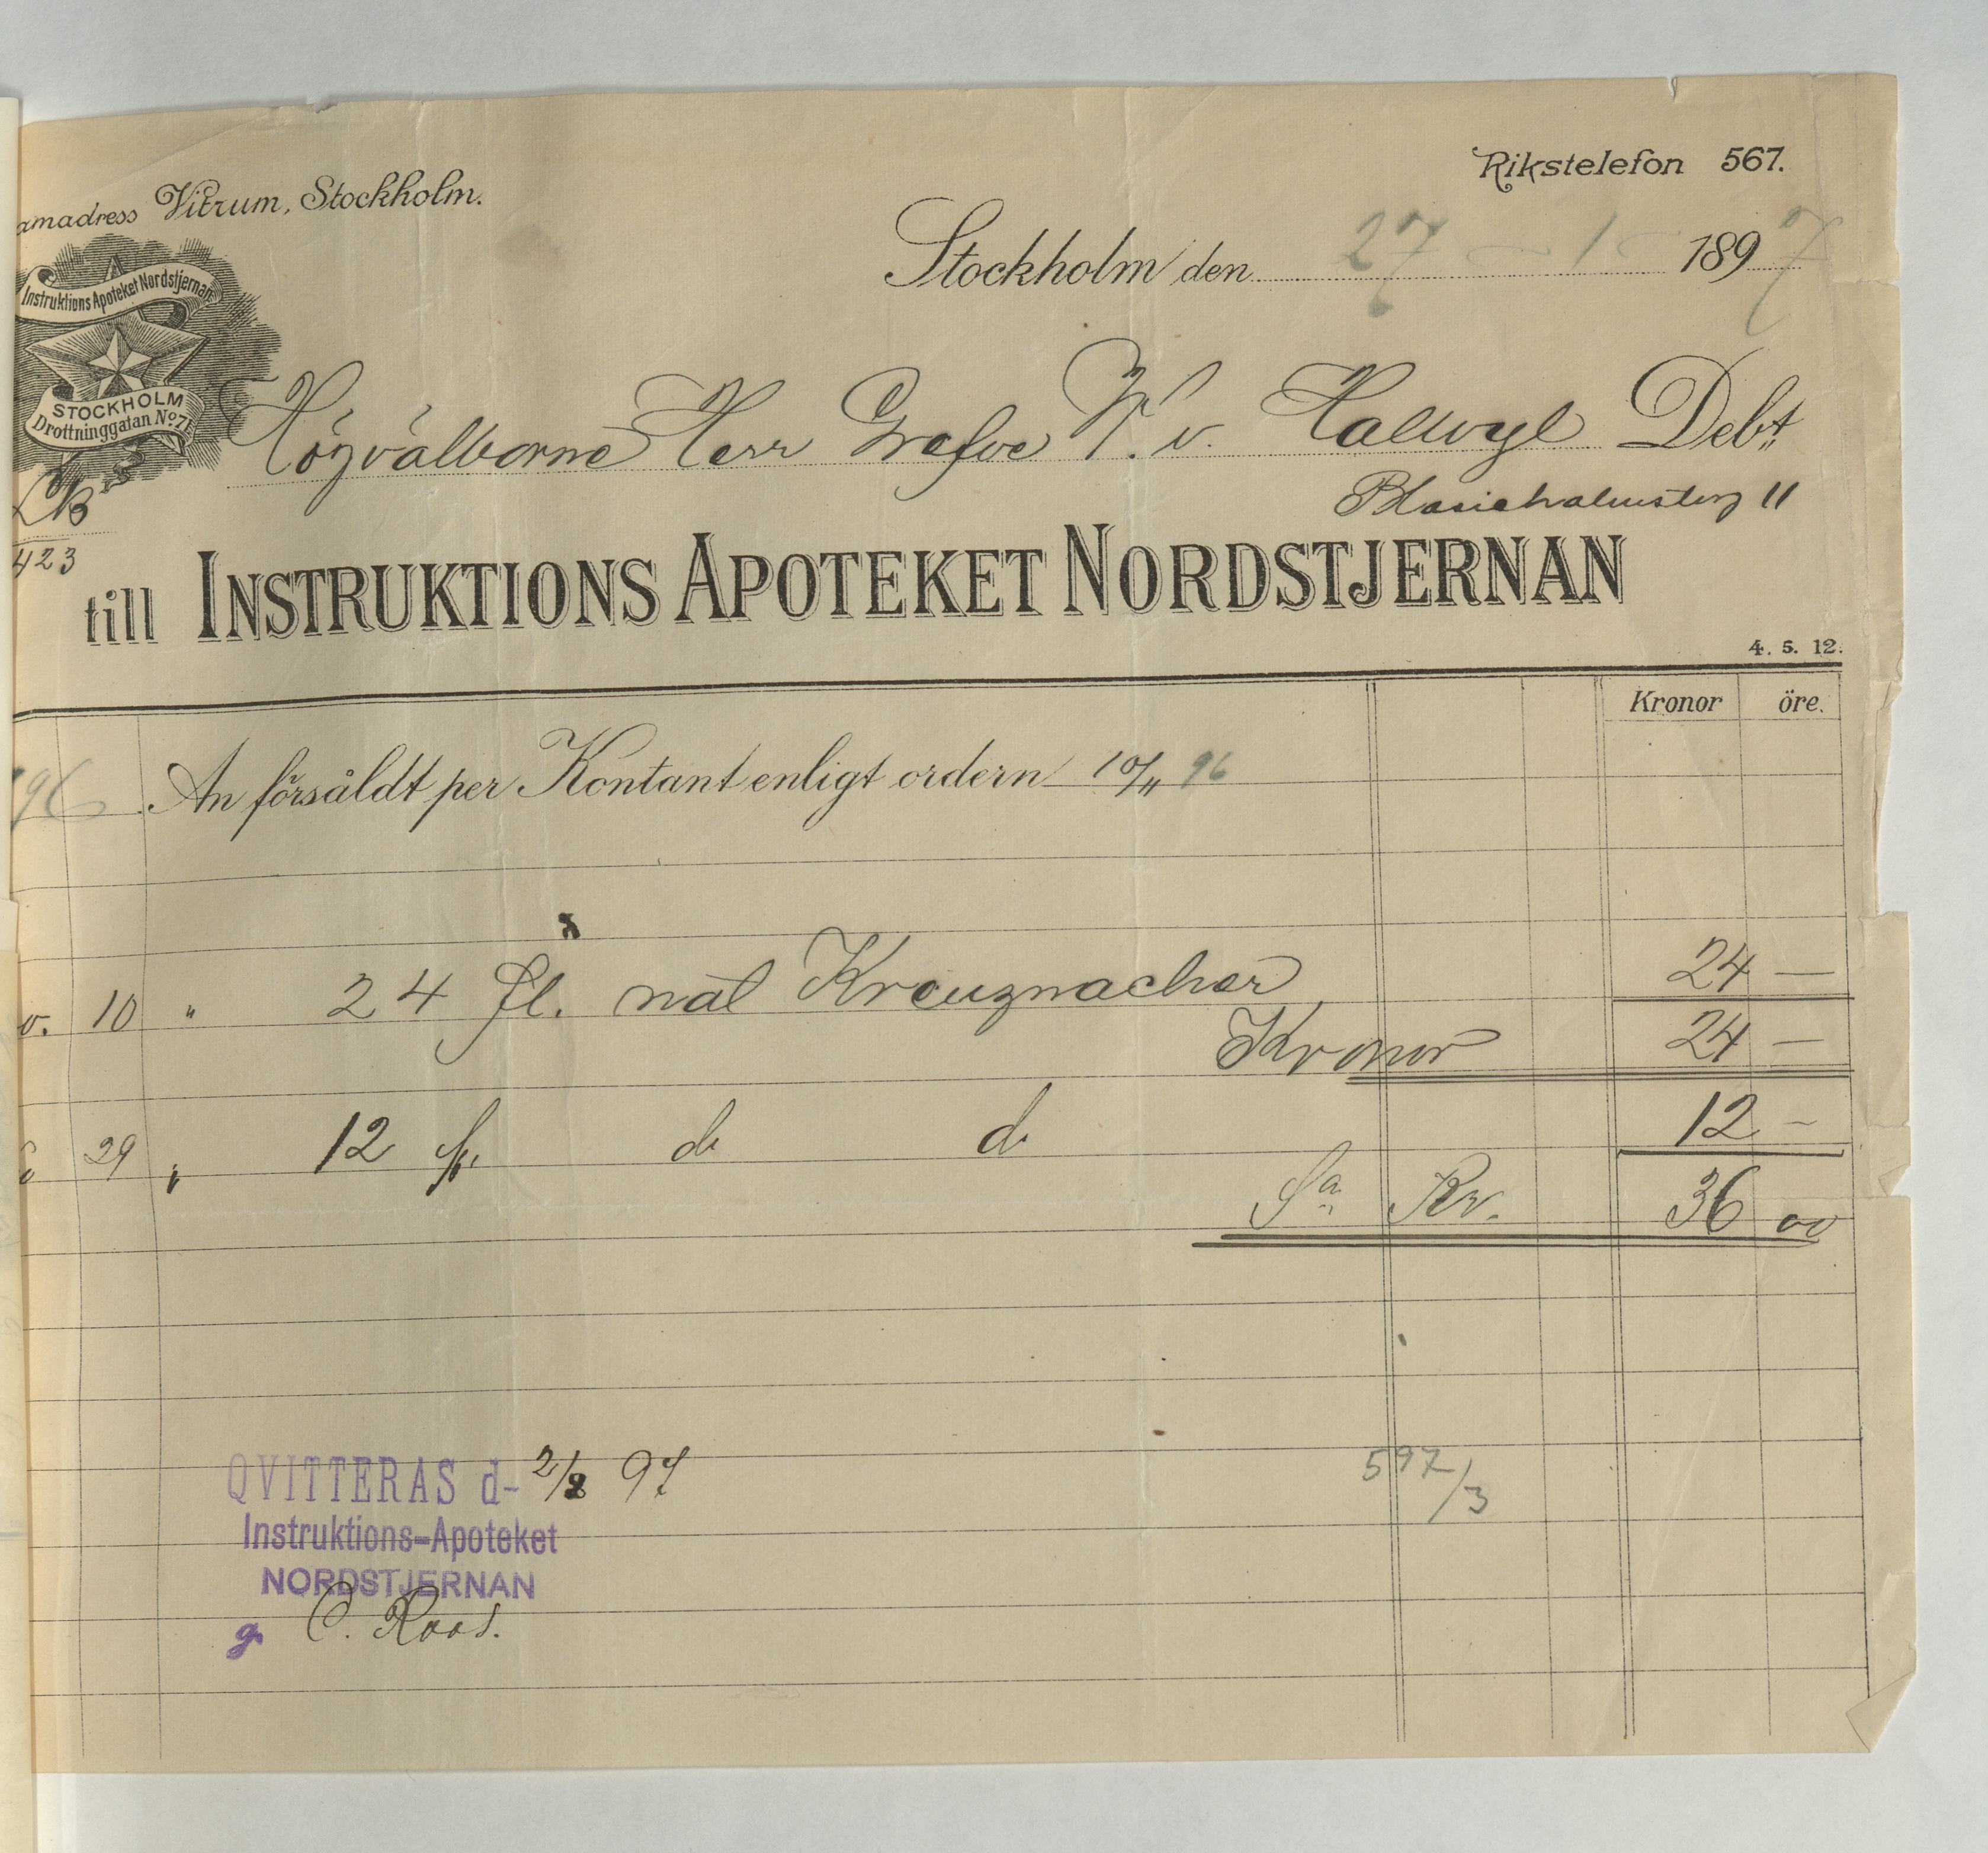 amadress Vitrum, Stockholm.
Rikstelefon 567.
Stockholm den 27 - 1 - 1897
Instruktions Apoteket Nordstjernan
STOCKHOLM
Drottninggatan No 71
Högvälborne Herr Grefve W. v. Hallwyl Debt
Blasieholmstorg 11
423
till INSTRUKTIONS APOTEKET NORDSTJERNAN
4. 5. 12.
Kronor öre.
96 An försåldt per Kontant enligt ordern 10/11 96
v. 10 " 24 fl. nat Kreuznacher 24 —
Kronor 24 —
29 " 12 fl. do do 12 –
Sa Kr. 36 00
QVITTERAS d- 2/2 97
597/3
Instruktions-Apoteket
NORDSTJERNAN
g C. Roos.